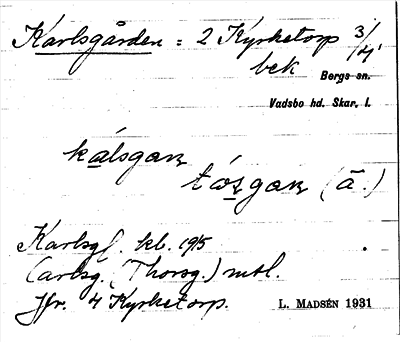 Karlsgården = 2 Kyrketorp 3/4
bek
Bergs sn.
Vadsbo hd. Skar. l.
kálsgan
tósgan (ā.)
Karlsgl. kb. 1915
Carlsg. (Thorsg.) mtl.
Jfr. 4 Kyrketorp.
L. MADSÉN 1931